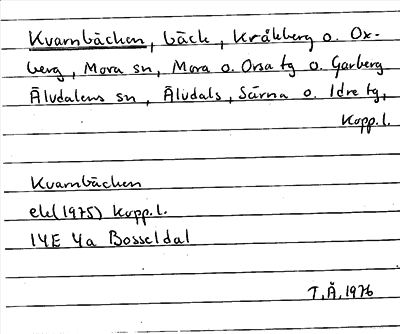 Kvarnbäcken, bäck, Kråkberg o. Ox-
berg, Mora sn, Mora o. Orsa tg o. Garberg
Älvdalens sn, Älvdals, Särna o. Idre tg,
Kopp.l.
Kvarnbäcken
ek(1975) Kopp.l.
14E 4a Bosseldal
T.Å. 1976